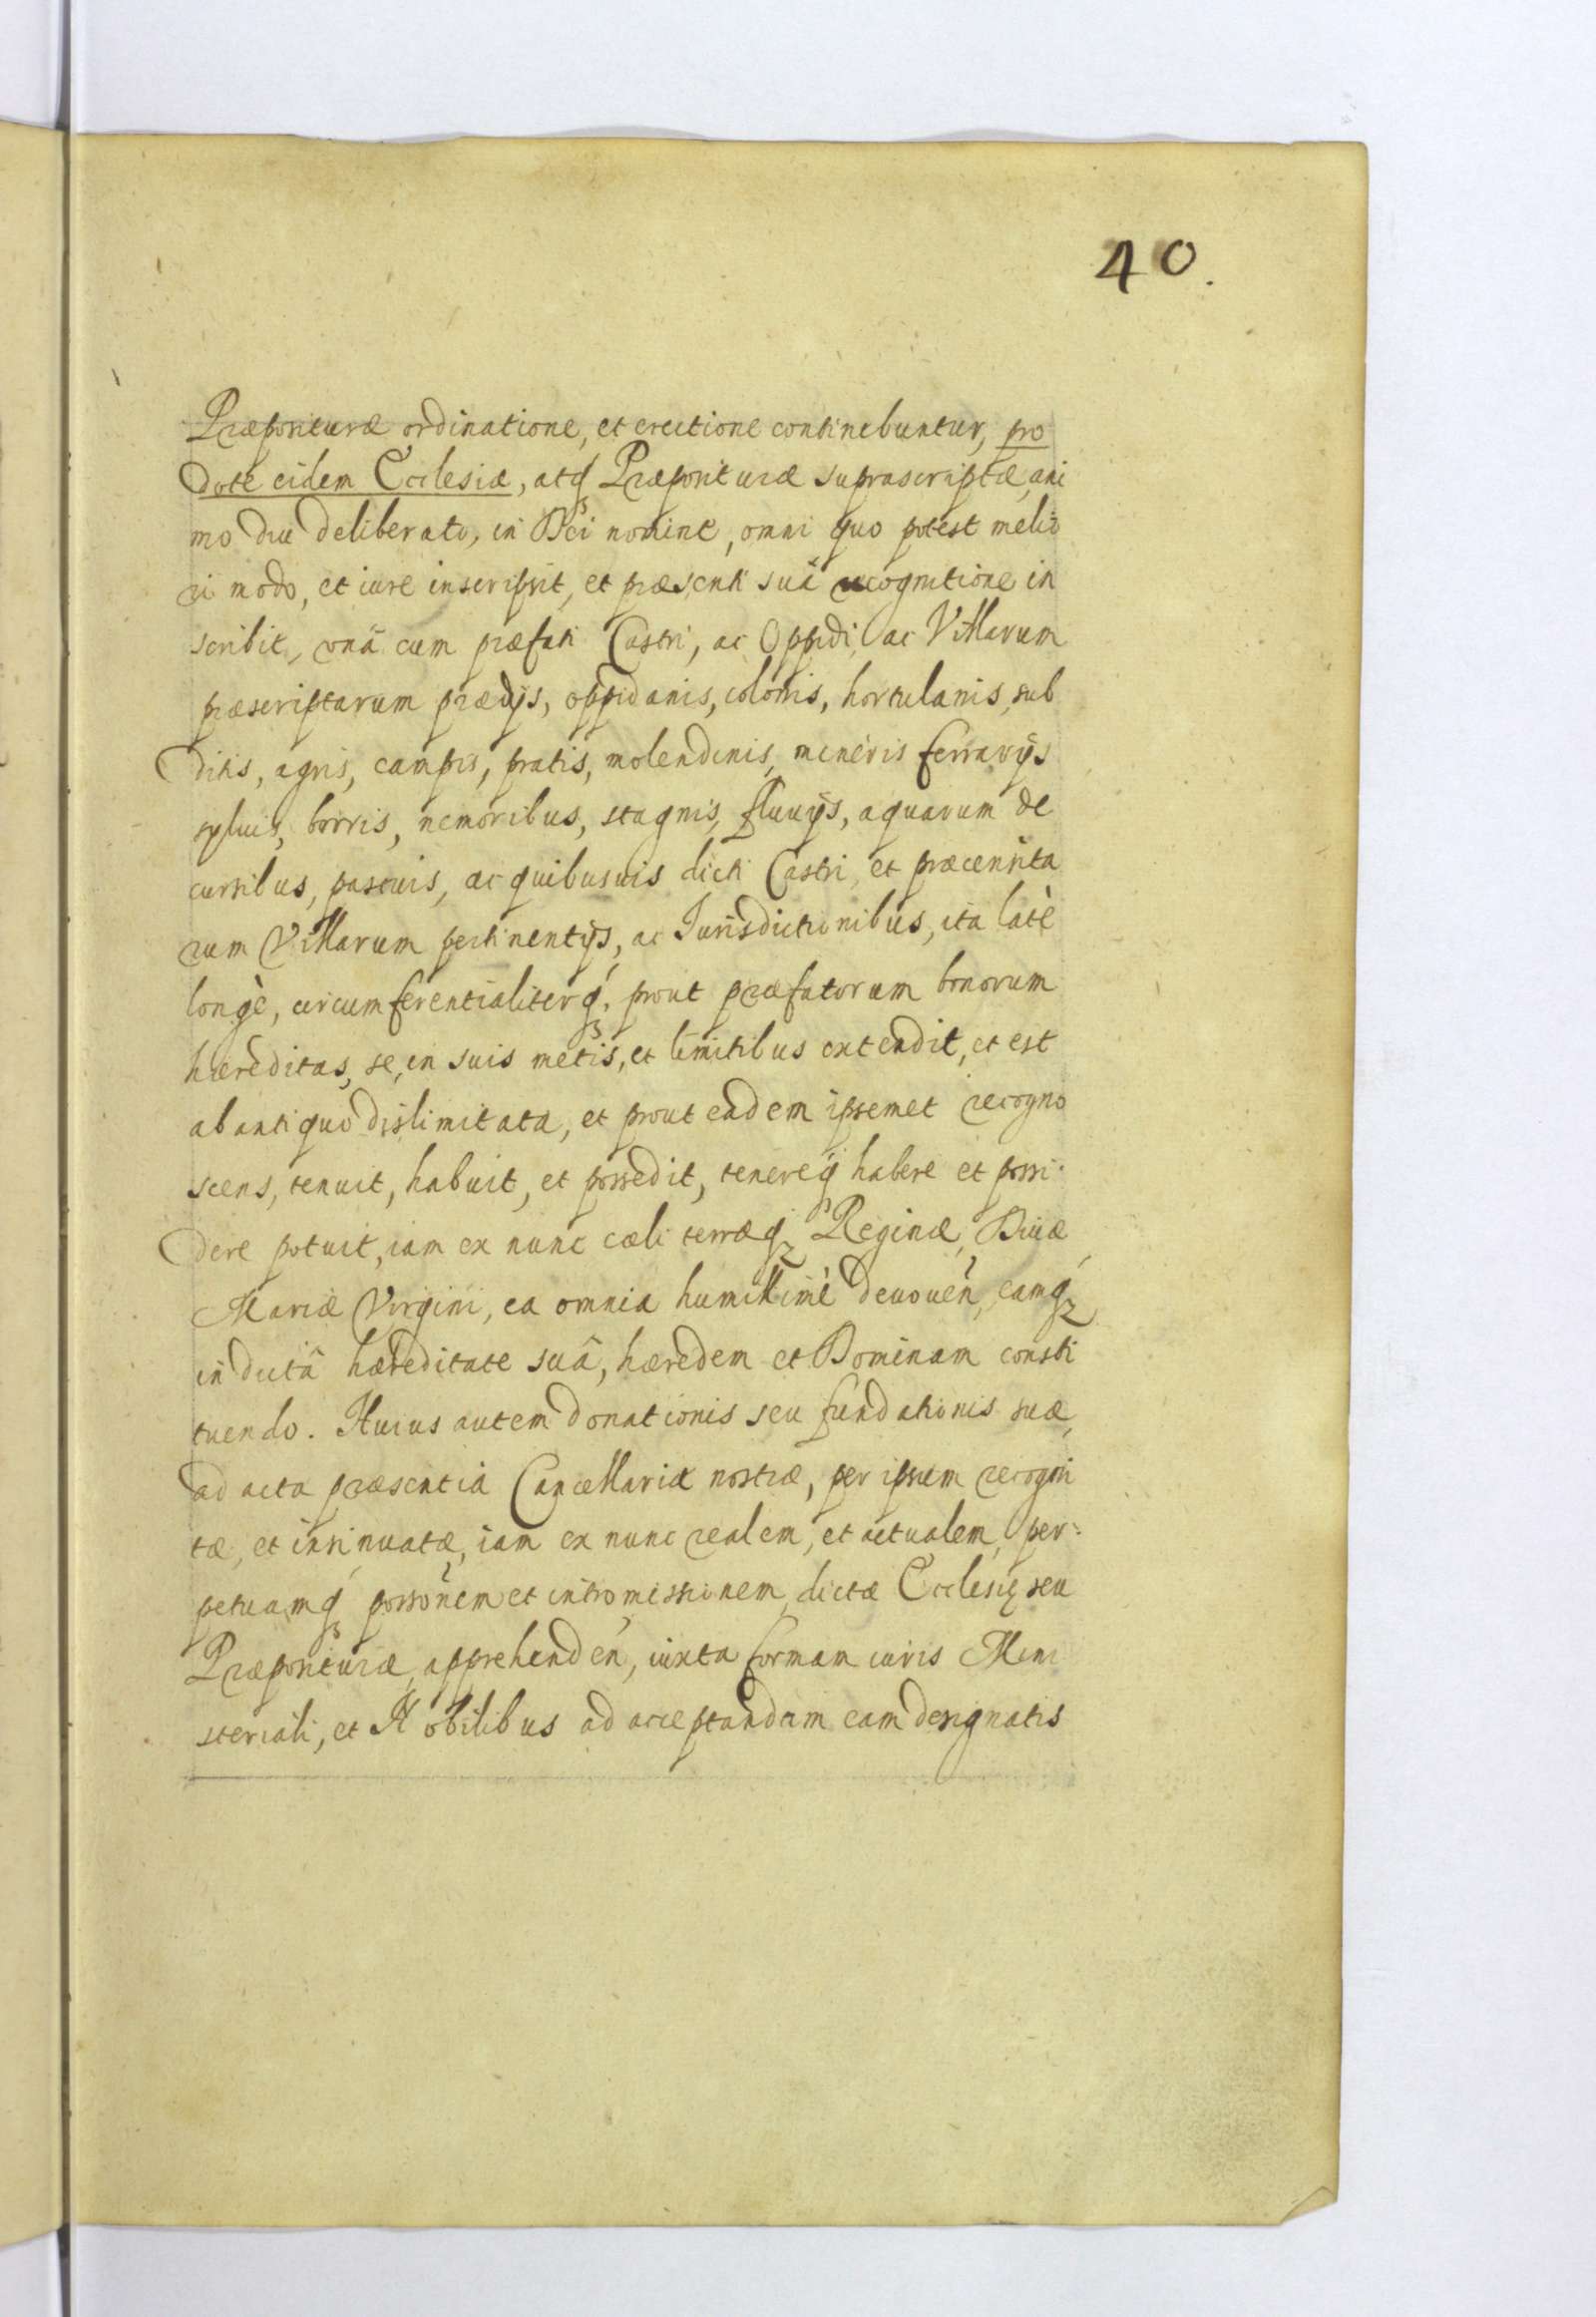 40.
Præpositturæ ordinatione, et erectione continebuntur, pro
dote eidem Ecclesiæ, atq3 Præpositturæ suprascriptæ, ani
mo diu deliberato, in Dei nomine, omni quo potest melio
ri modo, et iure inscripsit, et præsenti suâ recognitione in
scribit, vnâ cum præfati Castri, ac Oppidi, ac Villarum
præscriptarum prædijs, oppidanis, colonis, hortulanis, sub
ditis, agris, campis, pratis, molendinis, mineris ferrarijs
syluis, borris, nemoribus, stagnis, fluuijs, aquarum de
cursibus, pascuis, ac quibusuis dicti Castri, et præcensita
rum Villarum pertinentijs, ac Jurisdictionibus, ita latè
longè, circumferentialiterq3, prout præfatorum bonorum
hæreditas, se, in suis metis, et limitibus extendit, et est
ab antiquo dislimitata, et prout eadem ipsemet recogno
scens, tenuit, habuit, et possedit, tenereq3 habere et possi
dere potuit, iam ex nunc cæli terræq3 Reginæ, Diuæ
Mariæ Virgini, ea omnia humillimè deuouen̄, eamq3
in dictâ hæreditate suâ, hæredem et Dominam consti
tuendo. Huius autem donationis seu fundationis suæ,
ad acta præsentia Cancellariæ nostræ, per ipsum recogni
tæ, et insinuatæ, iam ex nunc realem, et actualem, per:
petuamq3 possōnem et intromissionem, dictæ Ecclesię seu
Præpositturæ, apprehenden̄, iuxta formam iuris Mini
steriali, et Nobilibus ad acceptandam eam designatis